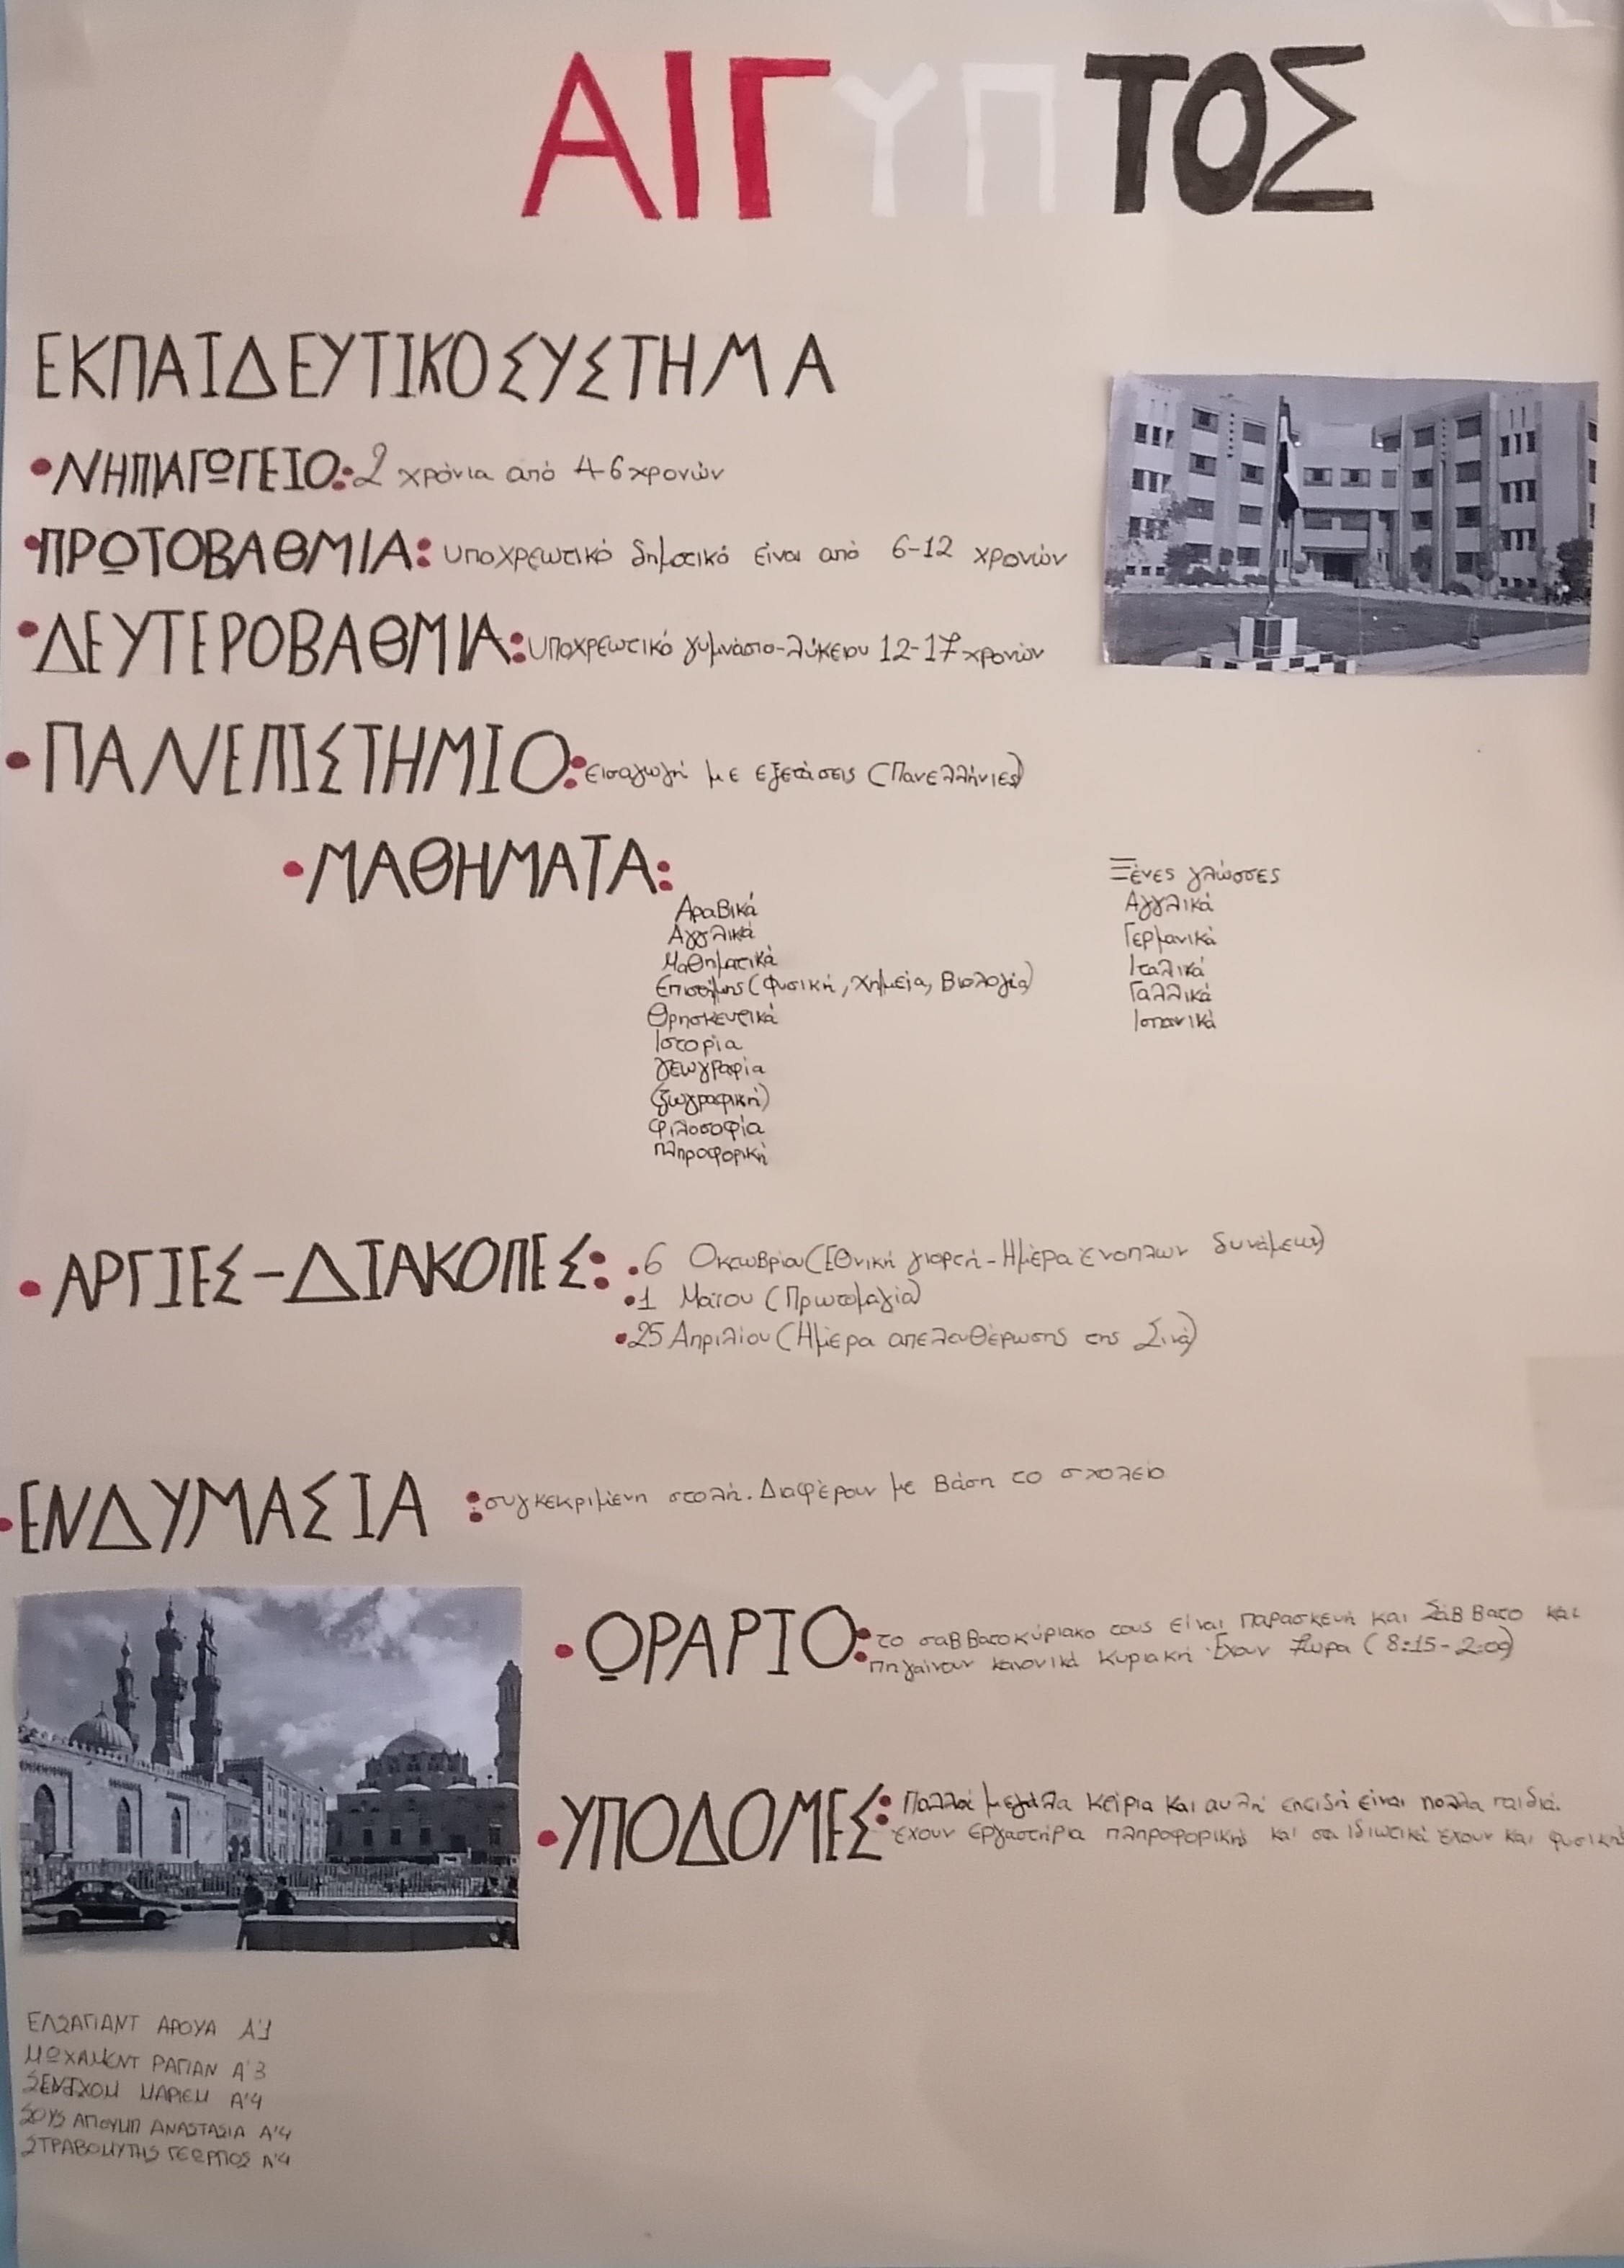 ΑΙΓΥΠΤΟΣ
ΕΚΠΑΙΔΕΥΤΙΚΟ ΣΥΣΤΗΜΑ
•ΝΗΠΙΑΓΩΓΕΙΟ: 2 χρόνια από 4-6 χρονών
•ΠΡΩΤΟΒΑΘΜΙΑ: υποχρεωτικό δημοτικό είναι από 6-12 χρονών
•ΔΕΥΤΕΡΟΒΑΘΜΙΑ: υποχρεωτικό γυμνάσιο-λύκειου 12-17 χρονών
•ΠΑΝΕΠΙΣΤΗΜΙΟ: εισαγωγή με εξετάσεις (Πανελλήνιες)
•ΜΑΘΗΜΑΤΑ:
Αραβικά
Αγγλικά
Μαθηματικά
Επιστήμης (Φυσική, Χημεία, Βιολογία)
Θρησκευτικά
Ιστορία
γεωγραφία
(ζωγραφική)
φιλοσοφία
πληροφορική
Ξένες γλώσσες
Αγγλικά
Γερμανικά
Ιταλικά
Γαλλικά
Ισπανικά
•ΑΡΓΙΕΣ-ΔΙΑΚΟΠΕΣ: •6 Οκτωβρίου (Εθνική γιορτή-Ημέρα ένοπλων δυνάμεων)
•1 Μαΐου (Πρωτομαγιά)
•25 Απριλίου (Ημέρα απελευθέρωσης της Σινά)
•ΕΝΔΥΜΑΣΙΑ :συγκεκριμένη στολή. Διαφέρουν με βάση το σχολείο
•ΩΡΑΡΙΟ: το σαββατοκύριακο τους είναι Παρασκευή και Σάββατο και
πηγαίνουν κανονικά Κυριακή. Έχουν 7ωρα (8:15-2:00)
•ΥΠΟΔΟΜΕΣ: Πολλά μεγάλα κτίρια και αυλή επειδή είναι πολλα παιδιά.
έχουν εργαστήρια πληροφορικής και σα ιδιωτικά έχουν και φυσικής
ΕΛΣΑΓΙΑΝΤ ΑΡΟΥΑ Α'1
ΜΩΧΑΜΕΝΤ ΡΑΓΙΑΝ Α'3
ΜΑΡΙΕΜ Α'4
ΣΟΥΣ ΑΝΑΣΤΑΣΙΑ Α'4
ΣΤΡΑΒΟΜΥΤΗΣ ΓΕΩΡΓΙΟΣ Α'4